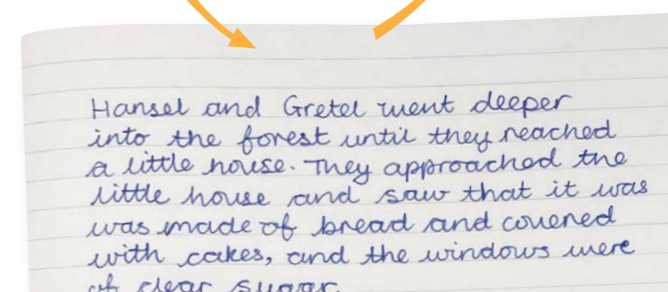 Hansel and Gretel went deeper
into the forest until they reached
a little house. They approached the
little house and saw that it was
was made of bread and covered
with cakes, and the windows were
of clear sugar